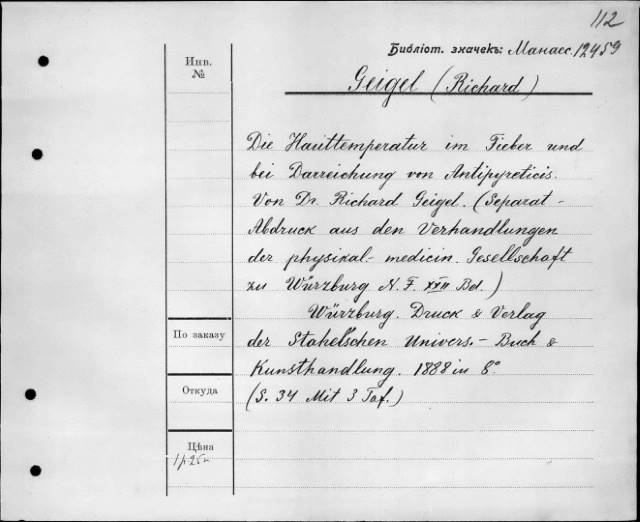 112
Библіот. значекъ: Манасс. 12459
Инв.
№
Geigel (Richard)
Die Hauttemperatur im Fieber und
bei Darreichung von Antipyreticis.
Von Dr. Richard Geigel. (Separat-
Abdruck aus den Verhandlungen
der physikal.- medicin. Gesellschaft
zu Würzburg N. F. XXII Bd.)
Würzburg. Druck & Verlag
По заказу
der Stahel'schen Univers.- Buch &
Kunsthandlung. 1888 in 8°
Откуда
(S. 34 Mit 3 Taf.)
Цѣна
1 р 25 к